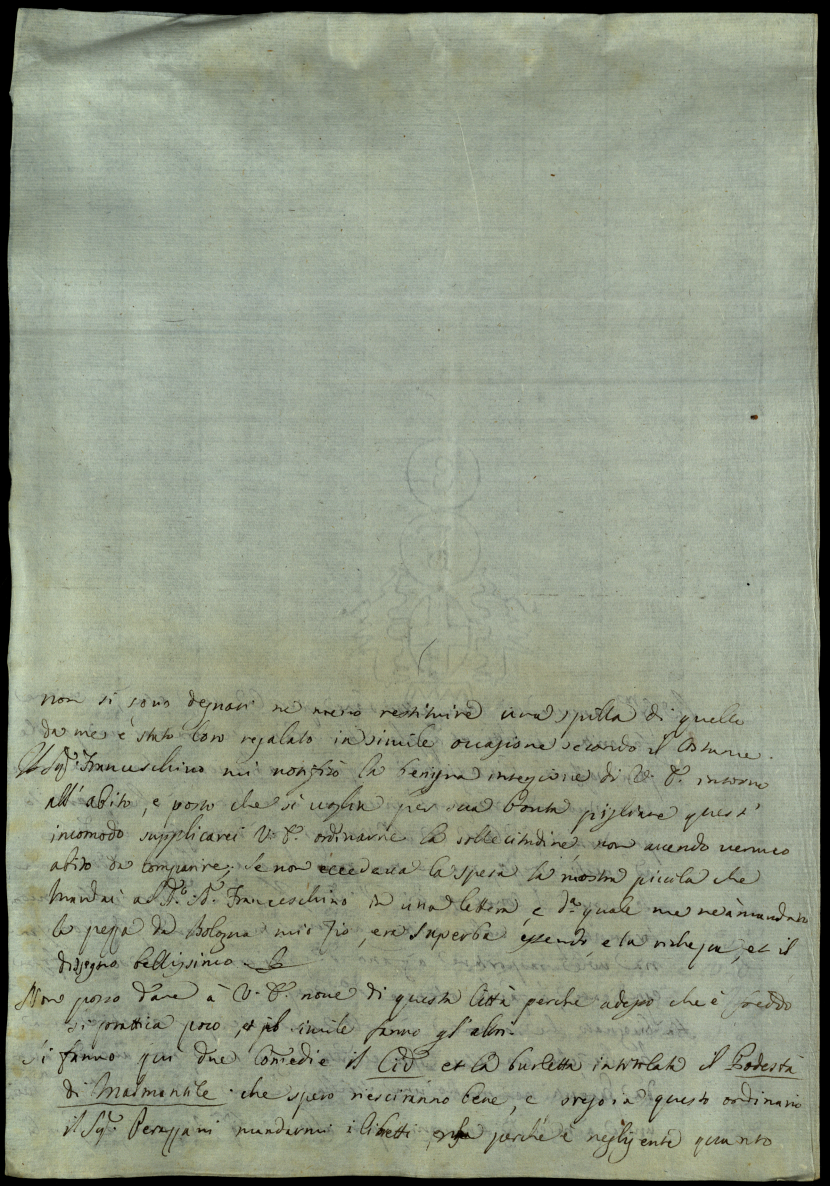 non si sono degnati nè meno restituire una spilla di quelle
da me è stato loro regalato in simile occasione secondo il Costume.
Il Sig.r Franceschino mi notifizò la benigna intenzione di V. E. intorno
all'abito, e posto che si voglia per sua bontà pigliare quest'
incomodo supplicarei V. E. ordinarne la sollecitudine non avendo veruno
abito da comparire; se non eccedeva la spesa la mostra piccola che
mandai al Franceschino in una lettera, e quale me ne à mandato
la pezza da Bologna mio Zio, era superba essendo, e la richezza, et il
dissegno bellissimo.
Non posso dare à V. E. nove di questa Città perche adesso che è freddo
si prattica poco, et il simile fanno gl'altri.
Si fanno qui due Comedie il Cid et la burletta intitolata il Podestà
di Malmantile che spero riesciranno bene, e questo ordinario
il Sig.r Perazzani mandarmi i libretti, perché è negligente quanto